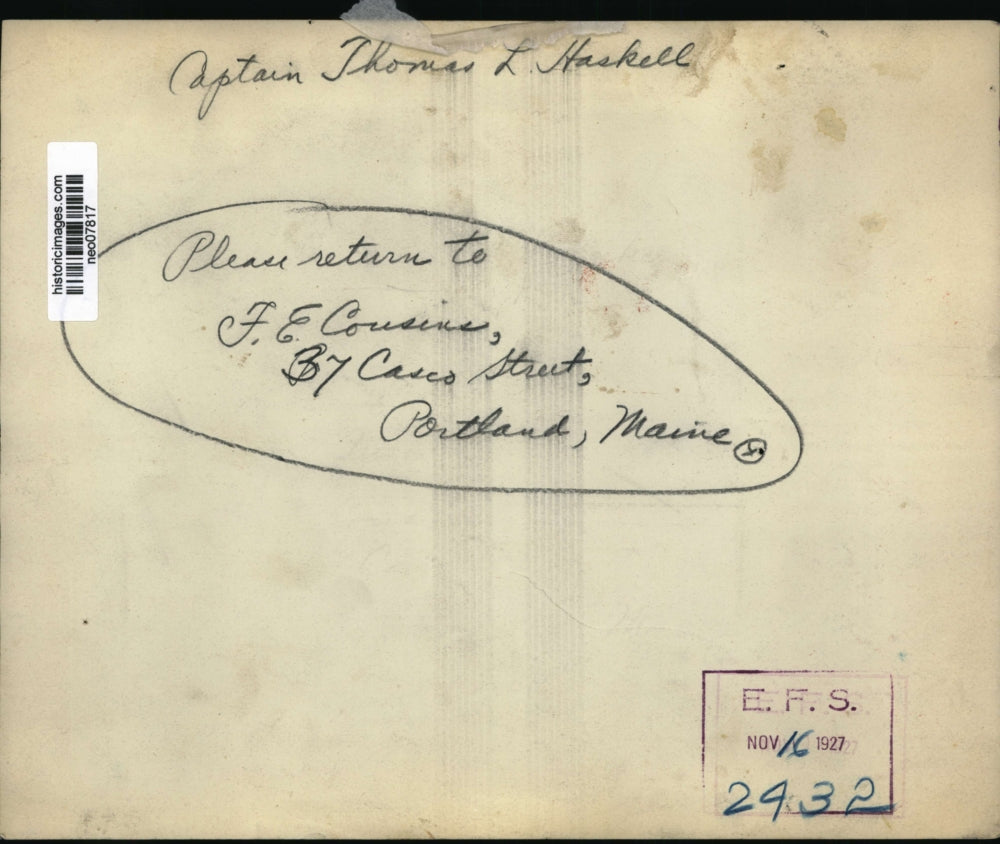 Captain Thomas L. Haskell
historicimages.com
neo07817
Please return to
F. E. Cousins,
37 Casco Street,
Portland, Maine
E. F. S.
NOV 16 1927
2432